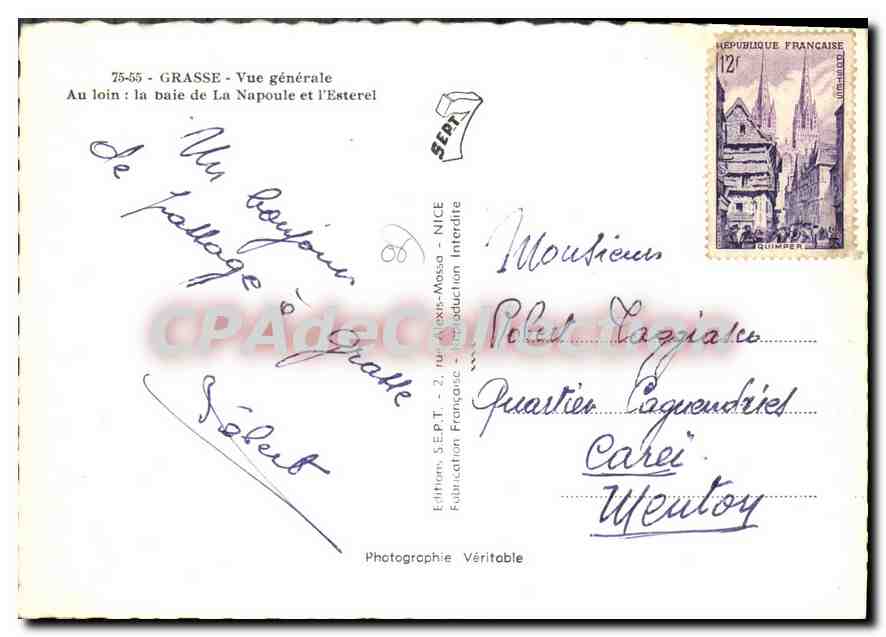 75-55 - GRASSE - Vue générale
Au loin : la baie de La Napoule et l'Esterel
Un bonjour
de passage à Grasse
Robert
SEPT
Editions S.E.P.T. - 2, rue Alexis-Mossa - NICE
Fabrication Française - Reproduction Interdite
REPUBLIQUE FRANÇAISE
12F
POSTES
QUIMPER
Monsieur
Robert
Quartier
Careï
Menton
Photographie Véritable
CPAdeCollection